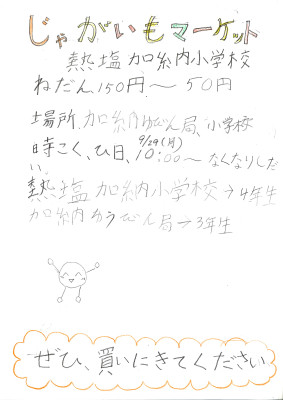 じゃがいもマーケット
熱塩加納小学校
ねだん150円〜50円
場所、加納ゆうびん局、小学校
時こく、ひ日、9/29(月)10:00〜なくなりしだ
い
熱塩加納小学校→4年生
加納ゆうびん局→3年生
ぜひ、買いにきてください